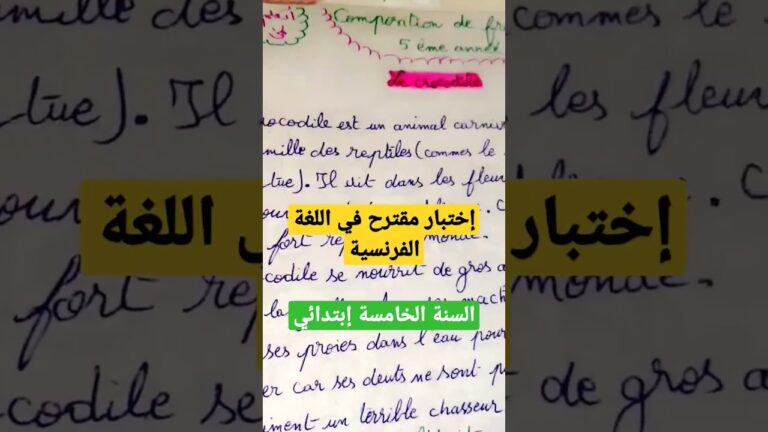 Compontion de fr
5 ème année
Le crocodile
rocodile est un animal carniv
mille des reptiles (commes le
tue). Il vit dans les fleu
إختبار مقترح في اللغة
الفرنسية
fort rep monde.
codile se nourrit de gros a
السنة الخامسة إبتدائي
ses proies dans l'eau pour
er car ses dents ne sont p
iment un terrible chasseur